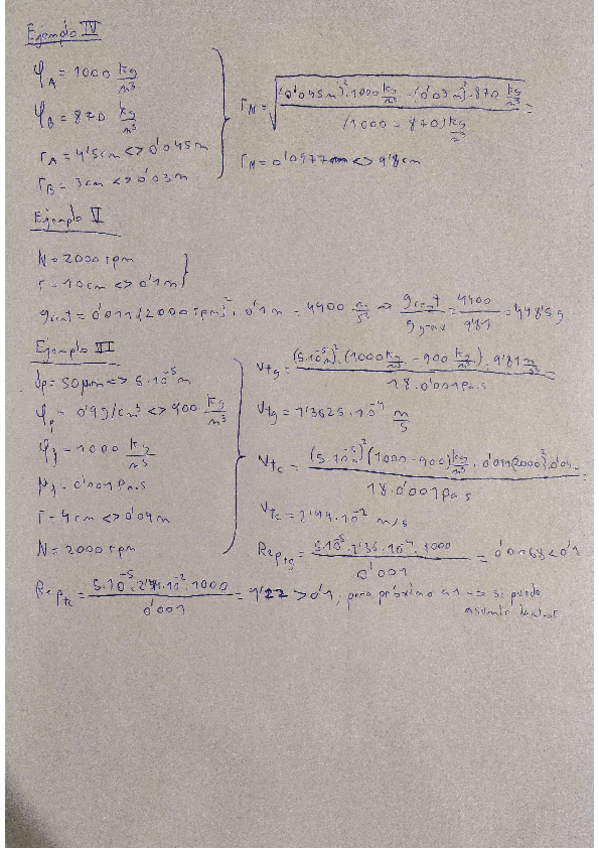 Ejemplo IV
φA = 1000 kg/m³
φB = 870 kg/m³
rA = 4'5cm <> 0'045m
rB = 3cm <> 0'03m
rN = √((0'045m)²·1000 kg/m³ - (0'03m)²·870 kg/m³ / (1000 - 870) kg/m³) =
rN = 0'0977m <> 9'8cm
Ejemplo V
N = 2000 rpm
r = 10cm <> 0'1m
gcent = 0'011(2000 rpm)²·0'1m = 4400 m/s² => gcent/ggrav = 4400/9'81 = 448'5 g
Ejemplo III
dp = 50μm <> 5·10⁻⁵m
φp = 0'9g/cm³ <> 900 kg/m³
φf = 1000 kg/m³
μf = 0'001 Pa.s
r = 4cm <> 0'04m
N = 2000 rpm
Vtg = (5·10⁻⁵m)²·(1000 kg/m³ - 900 kg/m³)·9'81 m/s² / 18·0'001 Pa.s =
Vtg = 1'3625·10⁻⁴ m/s
Vtc = (5·10⁻⁵)²(1000 - 900) kg/m³·0'011(2000)²·0'04 / 18·0'001 Pa s =
Vtc = 2'44·10⁻² m/s
Reptg = 5·10⁻⁵·1'36·10⁻⁴·1000 / 0'001 = 0'0068 < 0'1
Reptc = 5·10⁻⁵·2'44·10⁻²·1000 / 0'001 = 1'22 > 0'1, pero próximo a 1 => si puede
asumir